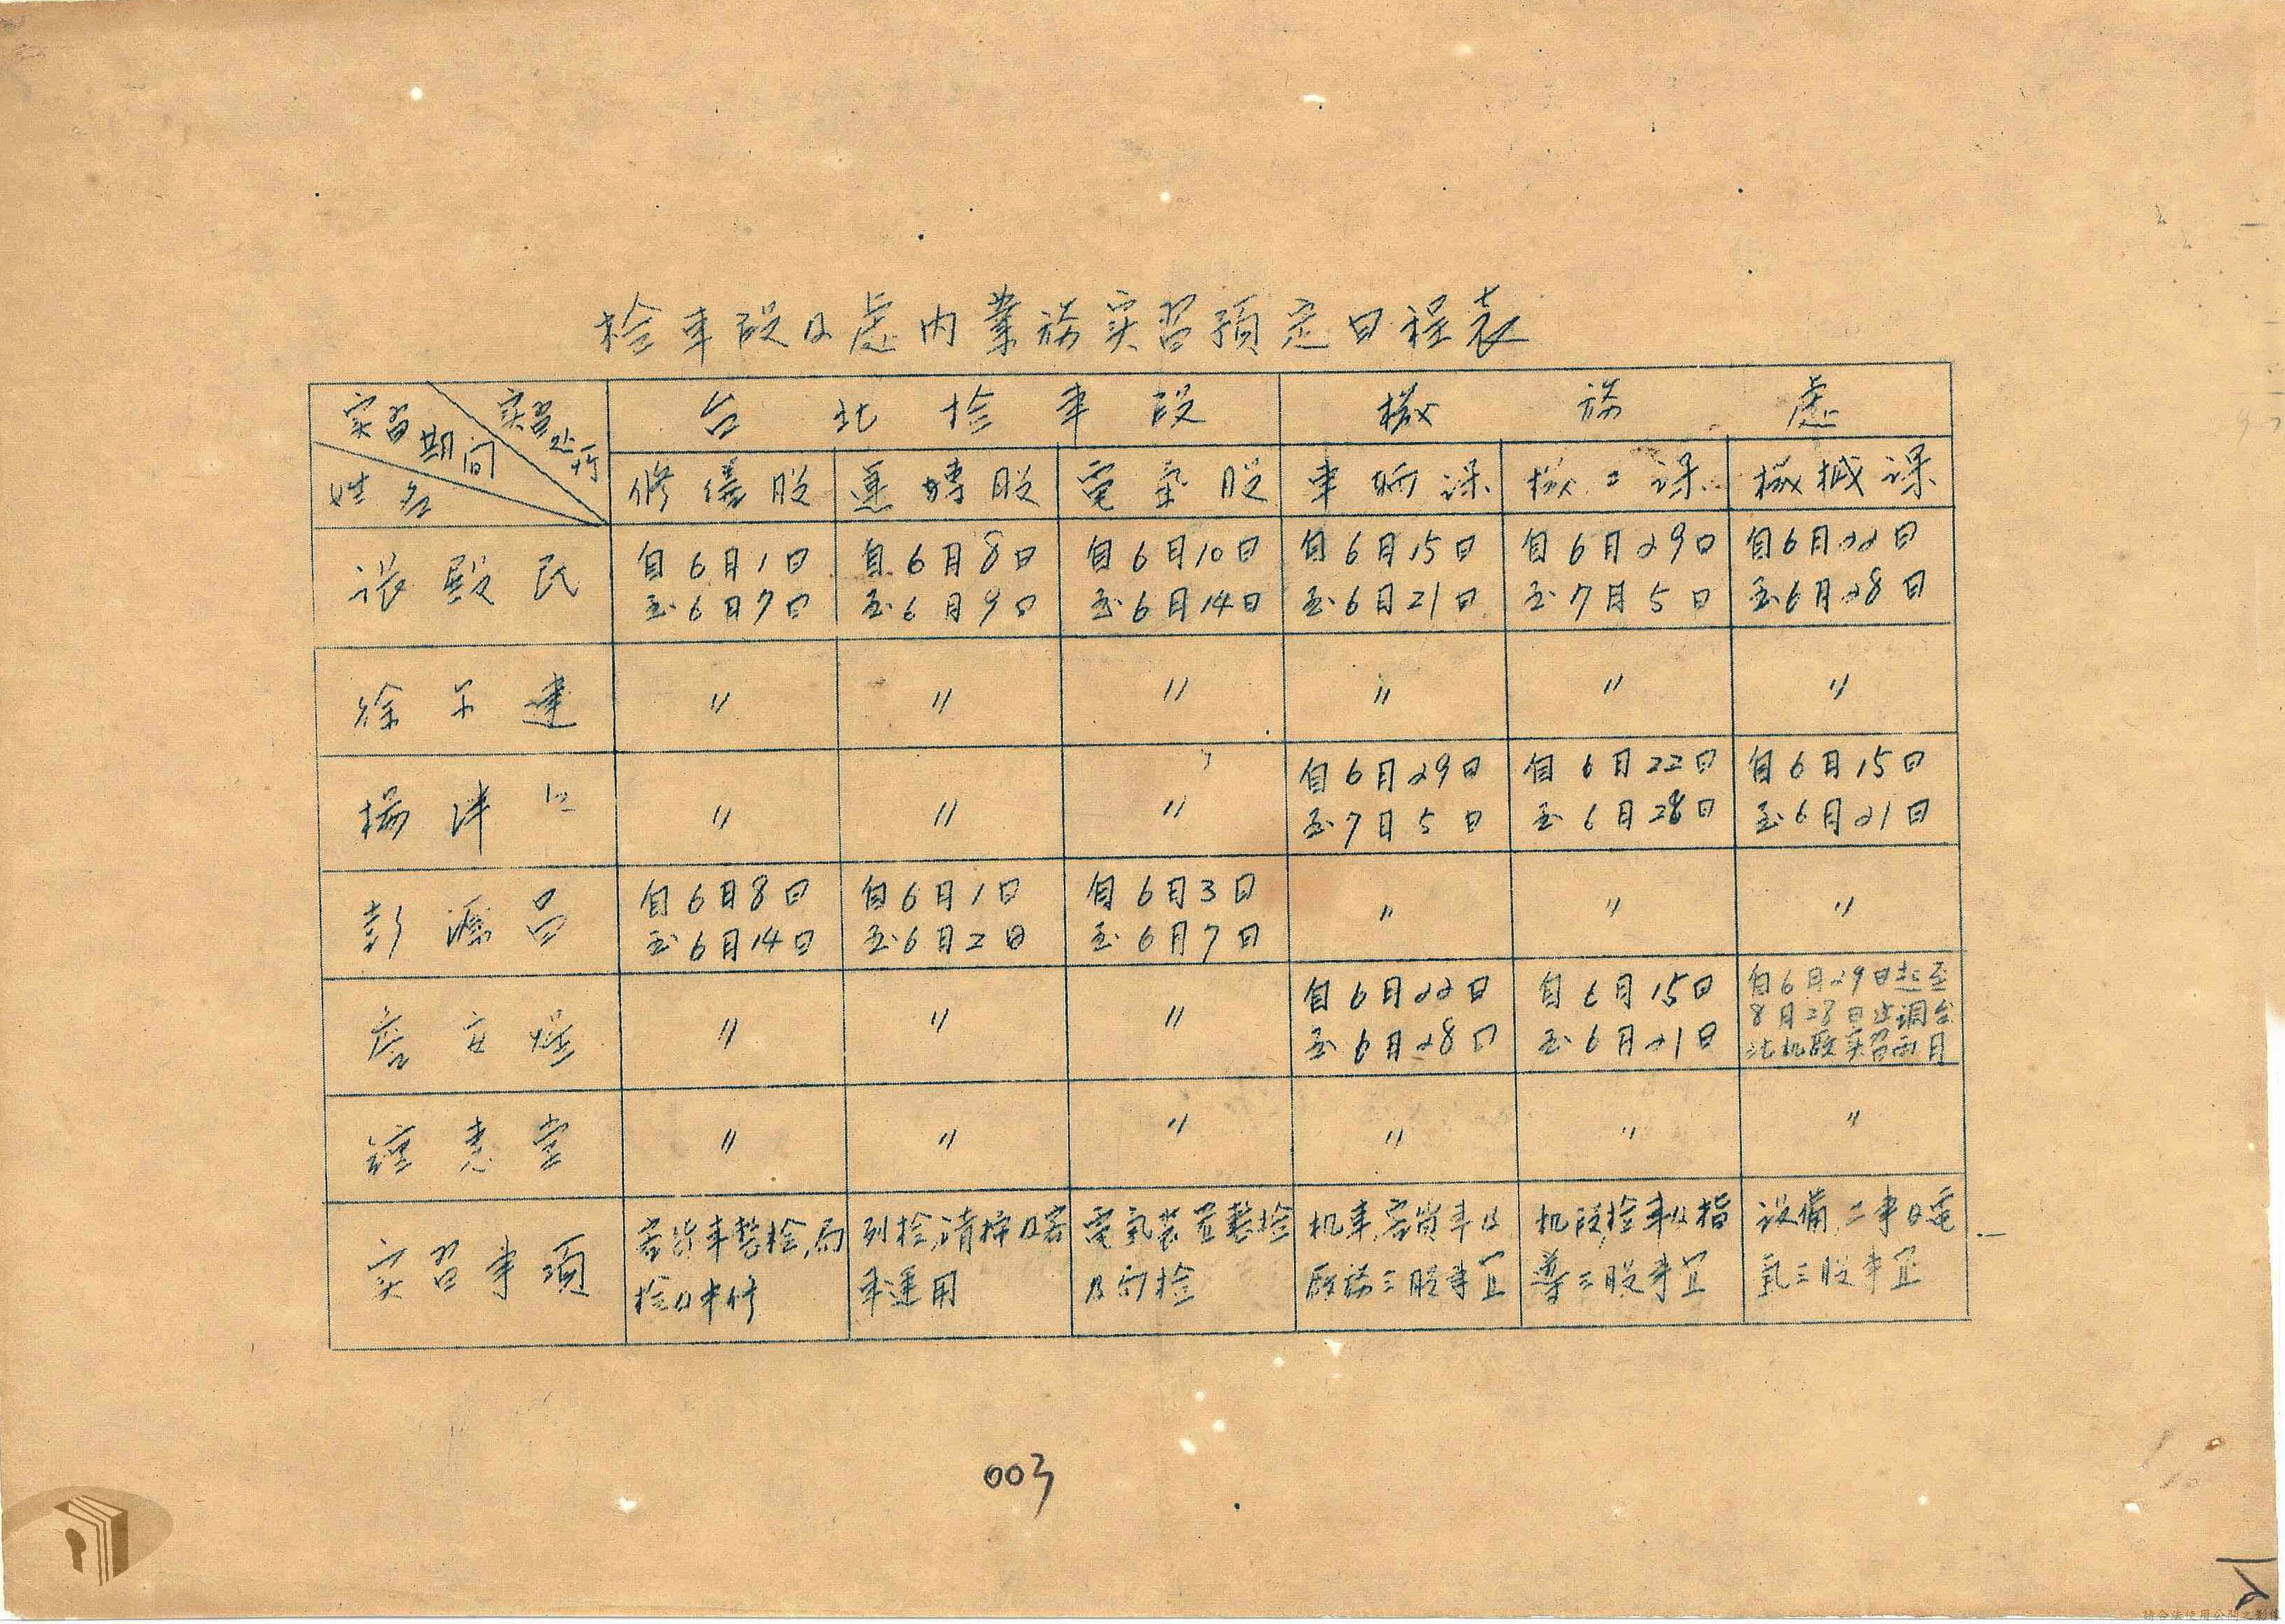 检車段及處内業務实習預定日程表
实習期间 实習处所 姓名
台北检車段 機務處
修繕股 運轉股 電氣股 車輌课 機工课 機械课
张殿民 自6月1日至6月7日 自6月8日至6月9日 自6月10日至6月14日 自6月15日至6月21日 自6月29日至7月5日 自6月22日至6月28日
徐 建 〃 〃 〃 〃 〃 〃
楊 仁 〃 〃 〃 自6月29日至7月5日 自6月22日至6月28日 自6月15日至6月21日
彭源昌 自6月8日至6月14日 自6月1日至6月2日 自6月3日至6月7日 〃 〃 〃
詹 煌 〃 〃 〃 自6月22日至6月28日 自6月15日至6月21日 自6月29日起至8月28日止调台北机段实習两月
鐘惠堂 〃 〃 〃 〃 〃 〃
实習事項 客货車整检,局检及半修 列检,清掃及客車運用 電氣装置整检及局检 机車,客货車及厰務三股事宜 机段,检車及指導三股事宜 设備,工事及電氣三股事宜
003